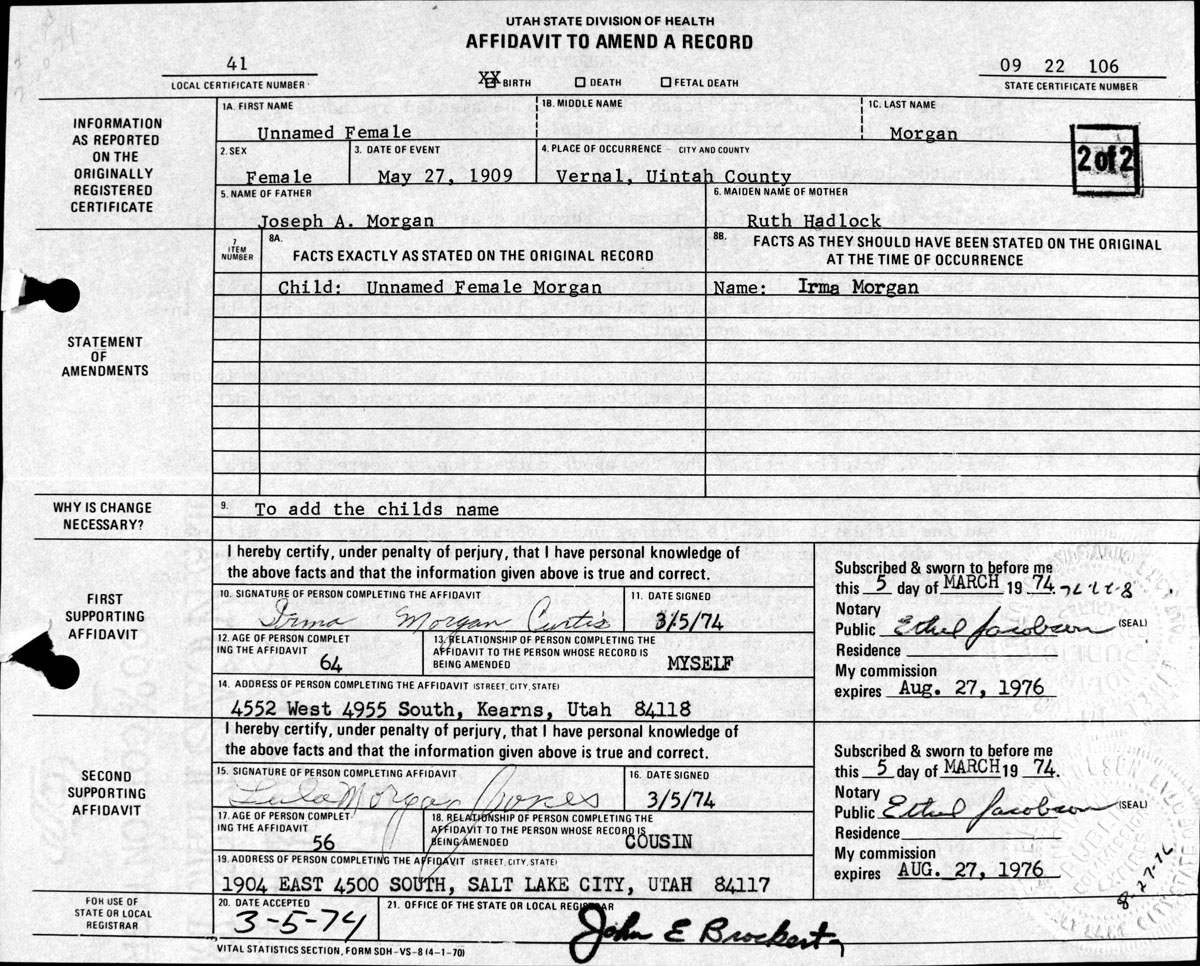 UTAH STATE DIVISION OF HEALTH
AFFIDAVIT TO AMEND A RECORD
41
LOCAL CERTIFICATE NUMBER
XX BIRTH DEATH FETAL DEATH
09 22 106
STATE CERTIFICATE NUMBER
INFORMATION AS REPORTED ON THE ORIGINALLY REGISTERED CERTIFICATE
1A. FIRST NAME 1B. MIDDLE NAME 1C. LAST NAME
Unnamed Female Morgan
2 of 2
2. SEX 3. DATE OF EVENT 4. PLACE OF OCCURRENCE - CITY AND COUNTY
Female May 27, 1909 Vernal, Uintah County
5. NAME OF FATHER 6. MAIDEN NAME OF MOTHER
Joseph A. Morgan Ruth Hadlock
STATEMENT OF AMENDMENTS
7 ITEM NUMBER
8A. FACTS EXACTLY AS STATED ON THE ORIGINAL RECORD
8B. FACTS AS THEY SHOULD HAVE BEEN STATED ON THE ORIGINAL AT THE TIME OF OCCURRENCE
Child: Unnamed Female Morgan Name: Irma Morgan
WHY IS CHANGE NECESSARY?
9. To add the childs name
FIRST SUPPORTING AFFIDAVIT
I hereby certify, under penalty of perjury, that I have personal knowledge of
the above facts and that the information given above is true and correct.
10. SIGNATURE OF PERSON COMPLETING THE AFFIDAVIT 11. DATE SIGNED
Irma Morgan Curtis 3/5/74
12. AGE OF PERSON COMPLETING THE AFFIDAVIT
64
13. RELATIONSHIP OF PERSON COMPLETING THE AFFIDAVIT TO THE PERSON WHOSE RECORD IS BEING AMENDED
MYSELF
14. ADDRESS OF PERSON COMPLETING THE AFFIDAVIT (STREET, CITY, STATE)
4552 West 4955 South, Kearns, Utah 84118
Subscribed & sworn to before me
this 5 day of MARCH 19 74
Notary
Public Ethel Jacobson (SEAL)
Residence
My commission
expires Aug. 27, 1976
SECOND SUPPORTING AFFIDAVIT
I hereby certify, under penalty of perjury, that I have personal knowledge of
the above facts and that the information given above is true and correct.
15. SIGNATURE OF PERSON COMPLETING AFFIDAVIT 16. DATE SIGNED
Lula Morgan Jones 3/5/74
17. AGE OF PERSON COMPLETING THE AFFIDAVIT
56
18. RELATIONSHIP OF PERSON COMPLETING THE AFFIDAVIT TO THE PERSON WHOSE RECORD IS BEING AMENDED
COUSIN
19. ADDRESS OF PERSON COMPLETING THE AFFIDAVIT (STREET, CITY, STATE)
1904 EAST 4500 SOUTH, SALT LAKE CITY, UTAH 84117
Subscribed & sworn to before me
this 5 day of MARCH 19 74.
Notary
Public Ethel Jacobson (SEAL)
Residence
My commission
expires AUG. 27, 1976
8-27-76
FOR USE OF STATE OR LOCAL REGISTRAR
20. DATE ACCEPTED 21. OFFICE OF THE STATE OR LOCAL REGISTRAR
3-5-74 John E Brockert
VITAL STATISTICS SECTION, FORM SDH-VS-8 (4-1-70)